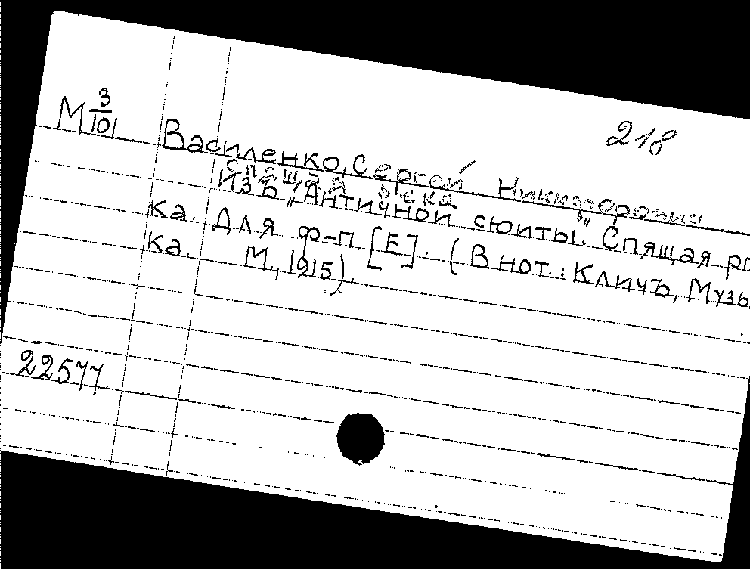 218
М 3/101
Василенко, Сергей Никифорович
Спящая река
Изъ „Античной сюиты.“ Спящая ре
ка. Для ф-п [E]. (В нот: Кличъ, Музы
ка. М, 1915).
22577